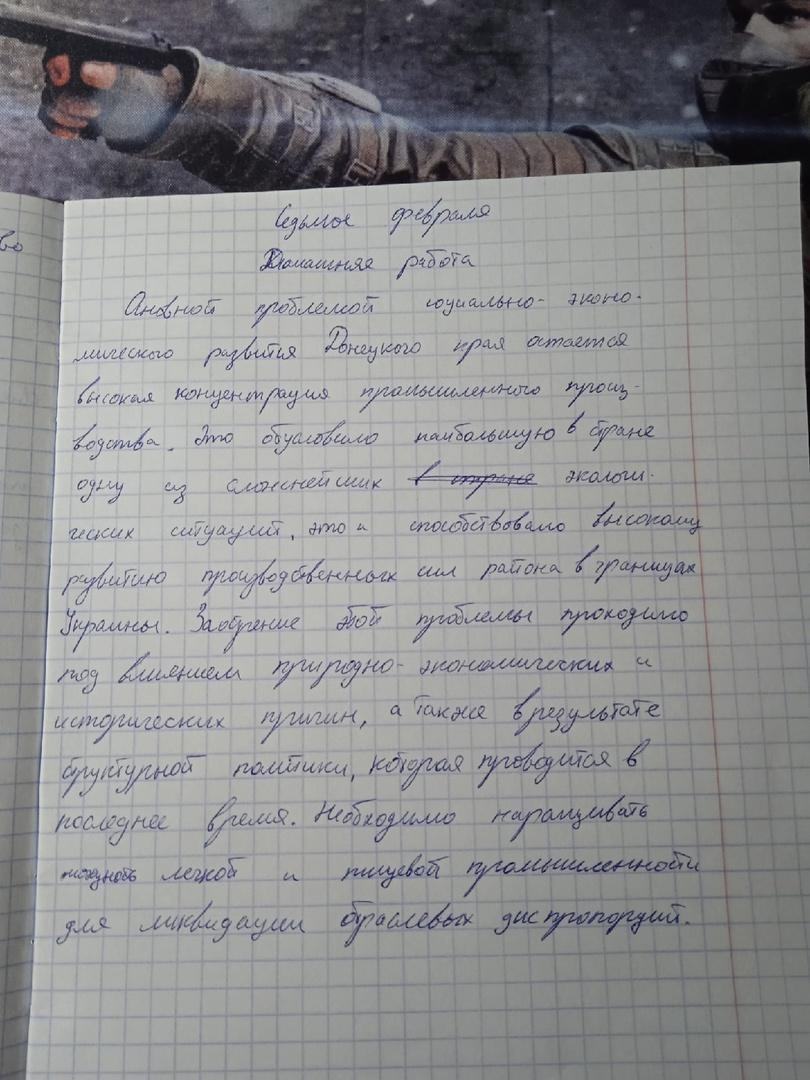 во
Седьмое февраля
Домашняя работа
Основной проблемой социально-эконо-
мического развития Донецкого края остается
высокая концентрация промышленного произ-
водства. Это обусловило наибольшую в стране
одну из сложнейших в стране экологи-
ческих ситуаций, это и способствовало высокому
развитию производственных сил района в границах
Украины. Заострение этой проблемы проходило
под влиянием природно-экономических и
исторических причин, а также в результате
структурной политики, которая проводится в
последнее время. Необходимо наращивать
мощность легкой и пищевой промышленности
для ликвидации отраслевых диспропорций.